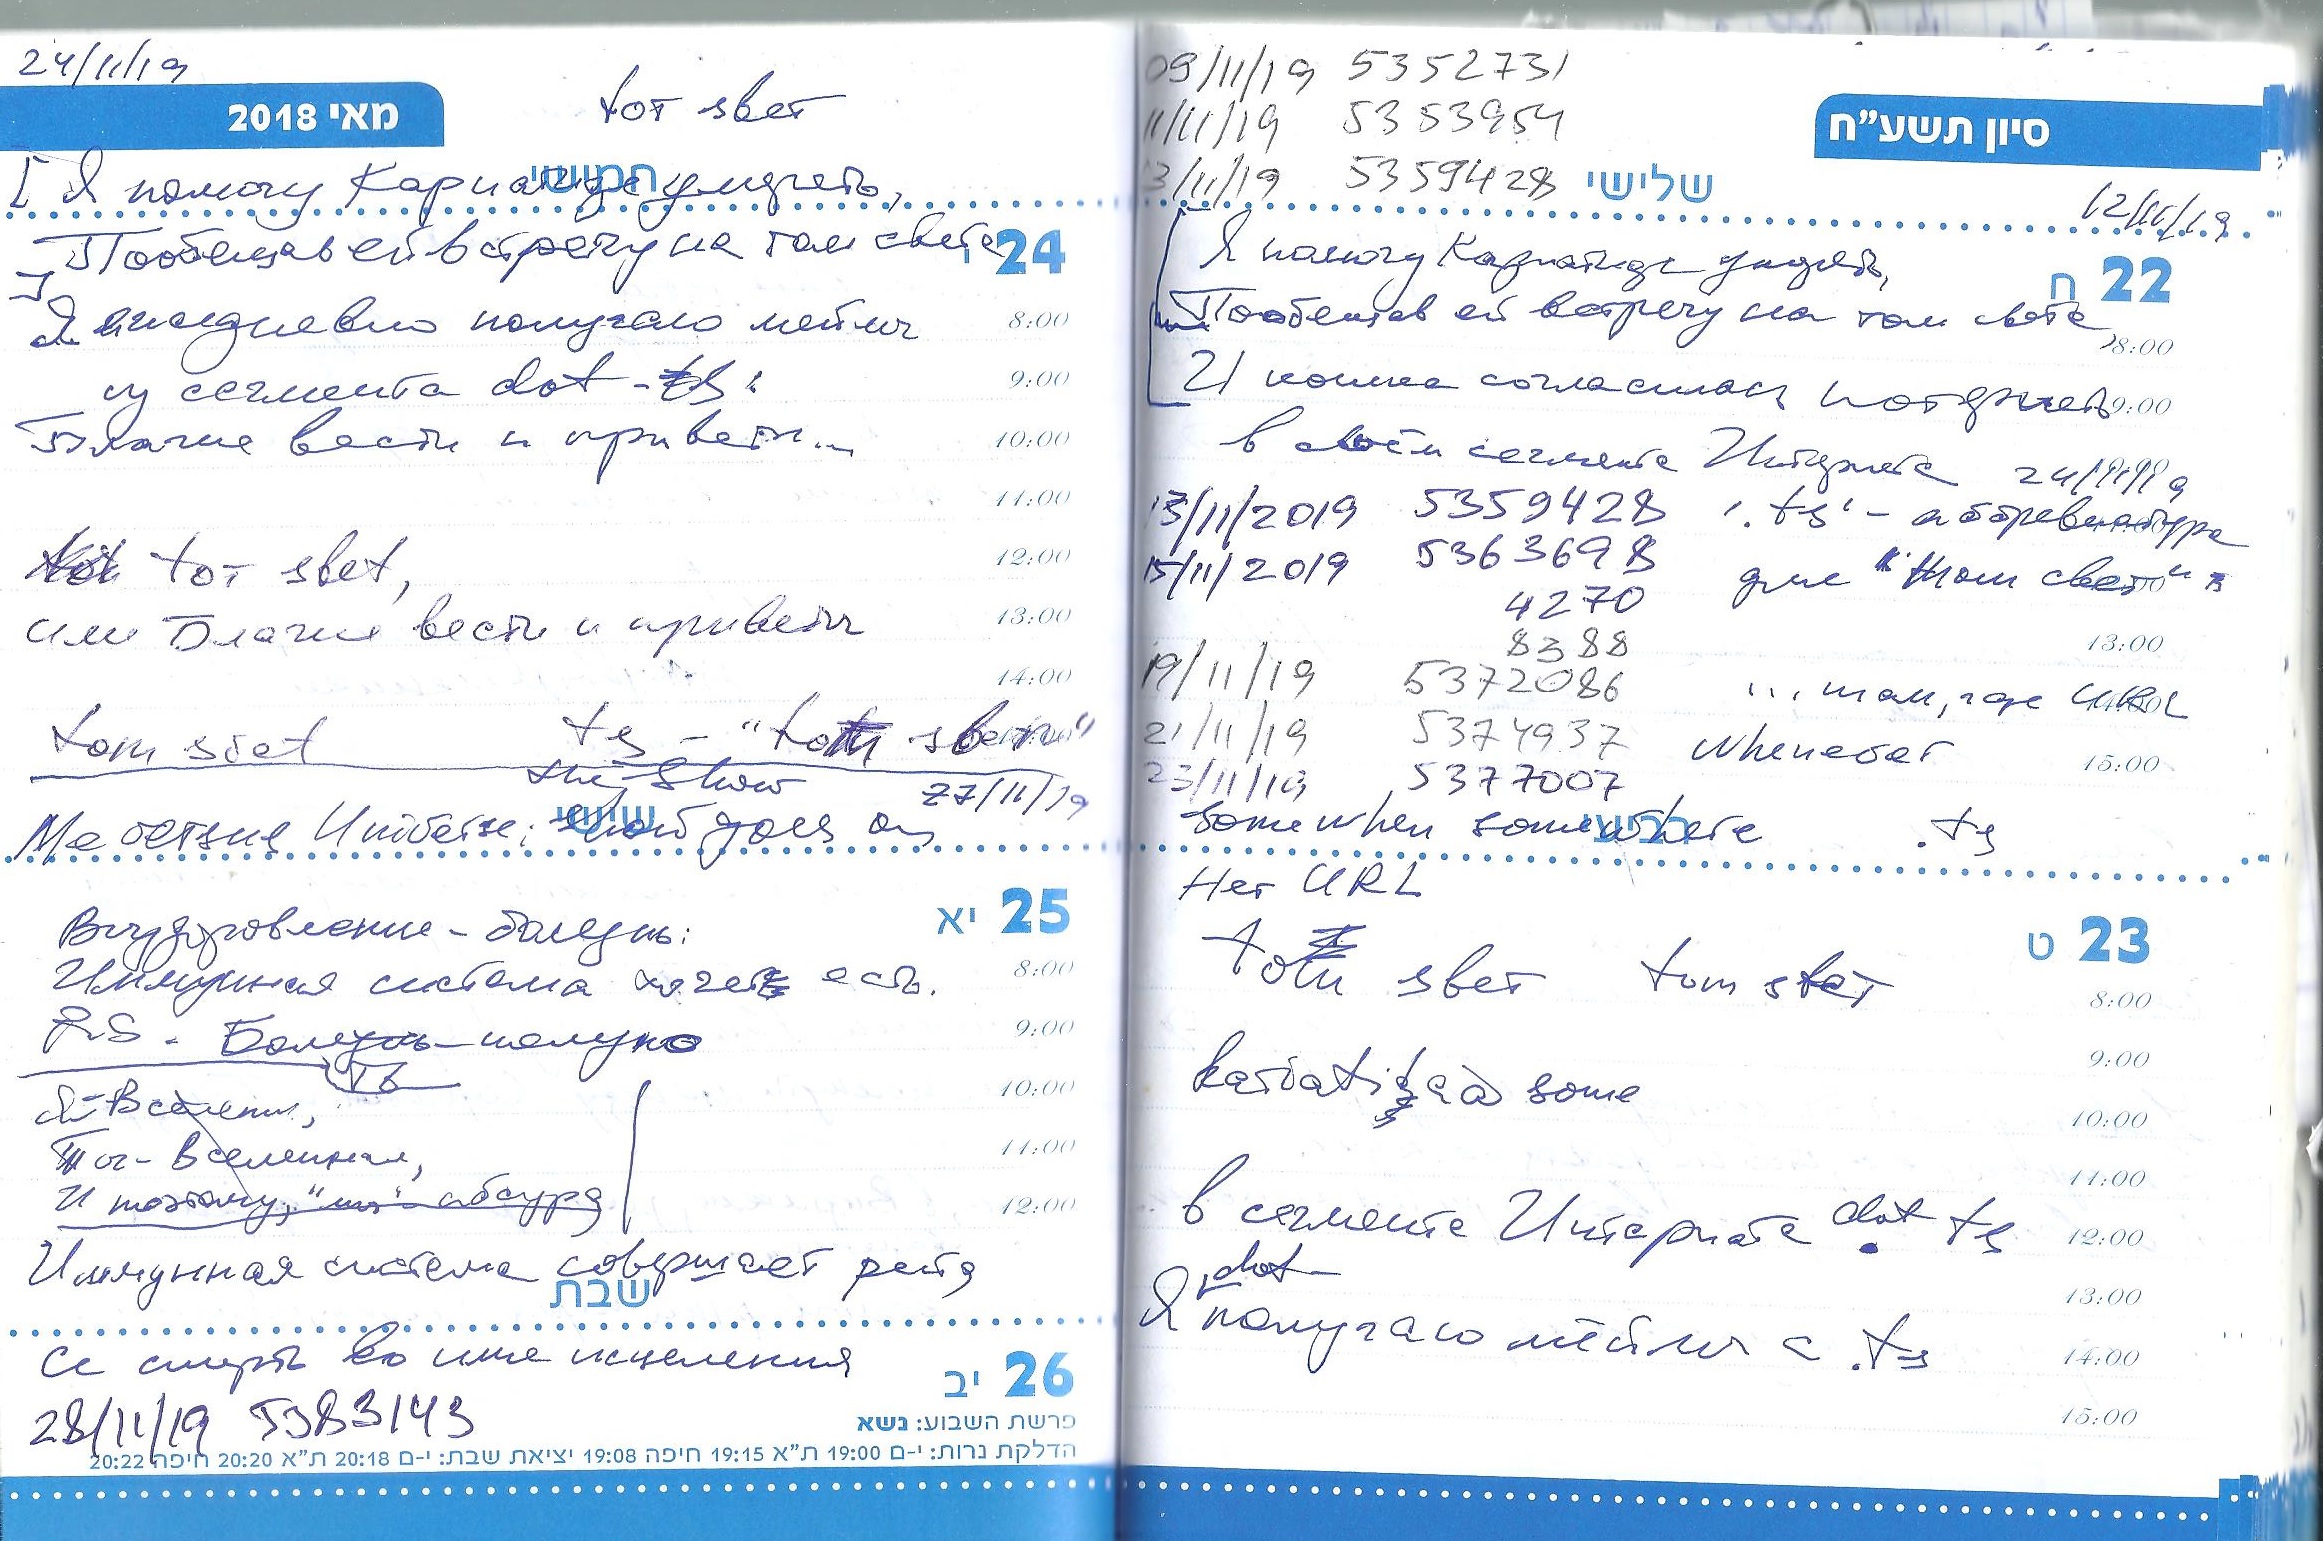 24/11/19
מאי 2018
tot svet
חמישי
Я помогу Кариатиде умереть,
Пообещав ей встречу на том свете
24
Я ежедневно получаю мейлы
8:00
из сегмента dot-ts:
9:00
Благие вести и приветы...
10:00
11:00
tot svet,
12:00
или Благие вести и приветы
13:00
14:00
tom svet ts - "tot svet"
the show 27/11/19
שישי
goes on
Выздоровление - болезнь:
25 יא
Иммунная система хочет есть.
8:00
P.S. Болезнь - полузно
9:00
ть
10:00
Я - Вселенн,
Ты - Вселенная,
11:00
И поэтому, "мы" - абсурд
12:00
Иммунная система совершает рейд
שבת
Се смерть во имя исцеления
26 יב
28/11/19 5383143
פרשת השבוע: נשא
הדלקת נרות: י-ם 19:00 ת"א 19:15 חיפה 19:08 יציאת שבת: י-ם 20:18 ת"א 20:20 חיפה 20:22
09/11/19 5352731
11/11/19 5353954
13/11/19 5359428
סיון תשע"ח
שלישי
12/11/19
Я помогу Кариатиде умереть,
22 ח
Пообещав ей встречу на том свете,
8:00
И кошка согласилась потерпеть
9:00
в своём сегменте Интернета 24/11/19
13/11/2019 5359428 '.ts' - аббревиатура
15/11/2019 5363698 для "том свет"
4270
8388
13:00
19/11/19 5372086 ... там, где URL
21/11/19 5374937
15:00
23/11/19 5377007
רביעי
somewhen somewhere .ts
Нет URL
23 ט
tot svet tom svet
8:00
9:00
some
10:00
11:00
в сегменте Интернета dot ts
12:00
dot
13:00
Я получаю мейлы с .ts
14:00
15:00